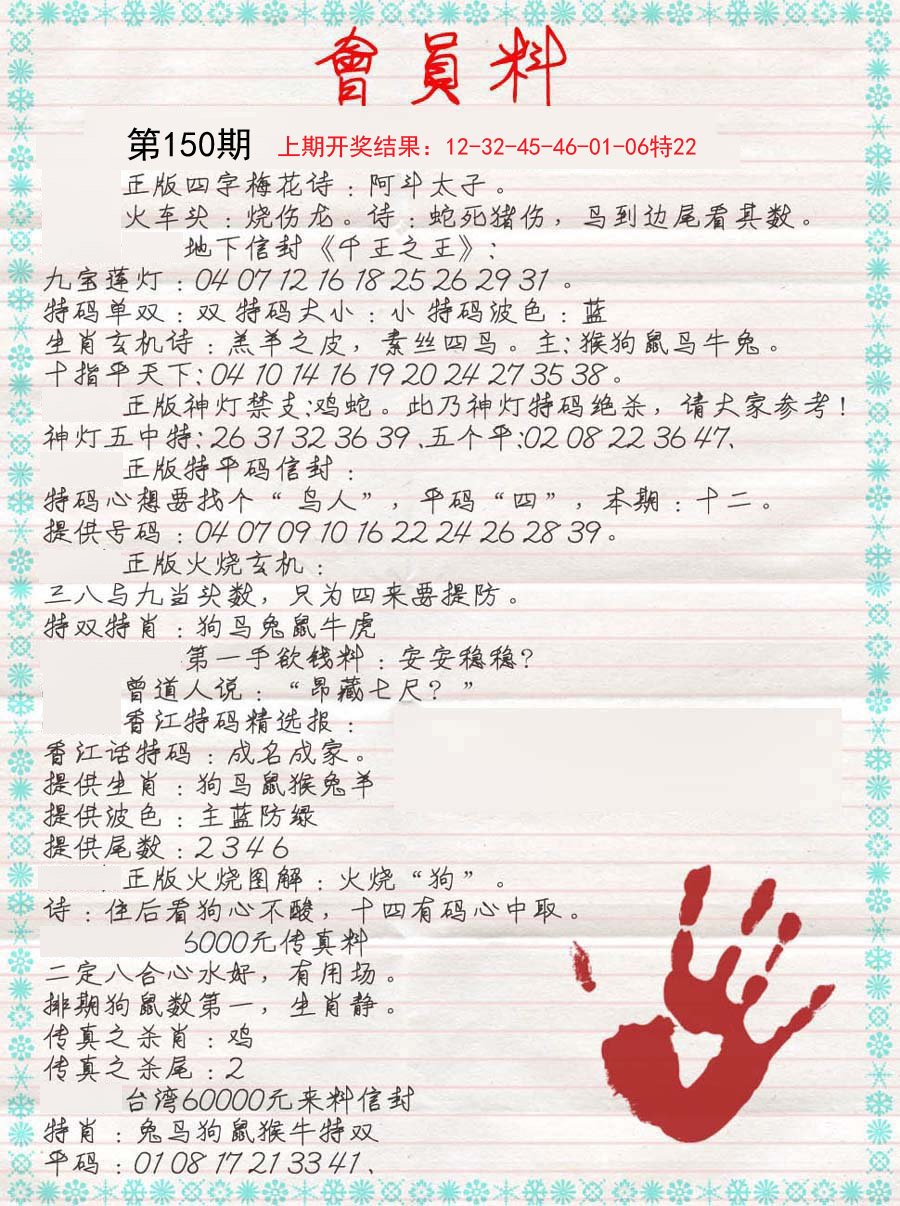 會員料
第150期 上期开奖结果：12-32-45-46-01-06特22
正版四字梅花诗：阿斗太子。
火车头：烧伤龙。诗：蛇死猪伤，鸟到边尾看其数。
地下信封《千王之王》：
九宝莲灯：04 07 12 16 18 25 26 29 31 。
特码单双：双 特码大小：小 特码波色：蓝
生肖玄机诗：羔羊之皮，素丝四鸟。主：猴狗鼠鸟牛兔。
十指平天下：04 10 14 16 19 20 24 27 35 38。
正版神灯禁支：鸡蛇。此乃神灯特码绝杀，请大家参考！
神灯五中特：26 31 32 36 39、五个平：02 08 22 36 47、
正版特平码信封：
特码心想要找个“鸟人”，平码“四”，本期：十二。
提供号码：04 07 09 10 16 22 24 26 28 39。
正版火烧玄机：
三八与九当头数，只为四来要提防。
特双特肖：狗鸟兔鼠牛虎
第一手欲钱料：安安稳稳？
曾道人说：“昂藏七尺？”
香江特码精选报：
香江话特码：成名成家。
提供生肖：狗鸟鼠猴兔羊
提供波色：主蓝防绿
提供尾数：2 3 4 6
正版火烧图解：火烧“狗”。
诗：住后看狗心不酸，十四有码心中取。
6000元传真料
二定八合心水好，有用场。
排期狗鼠数第一，生肖静。
传真之杀肖：鸡
传真之杀尾：2
台湾60000元来料信封
特肖：兔鸟狗鼠猴牛特双
平码：01 08 17 21 33 41、